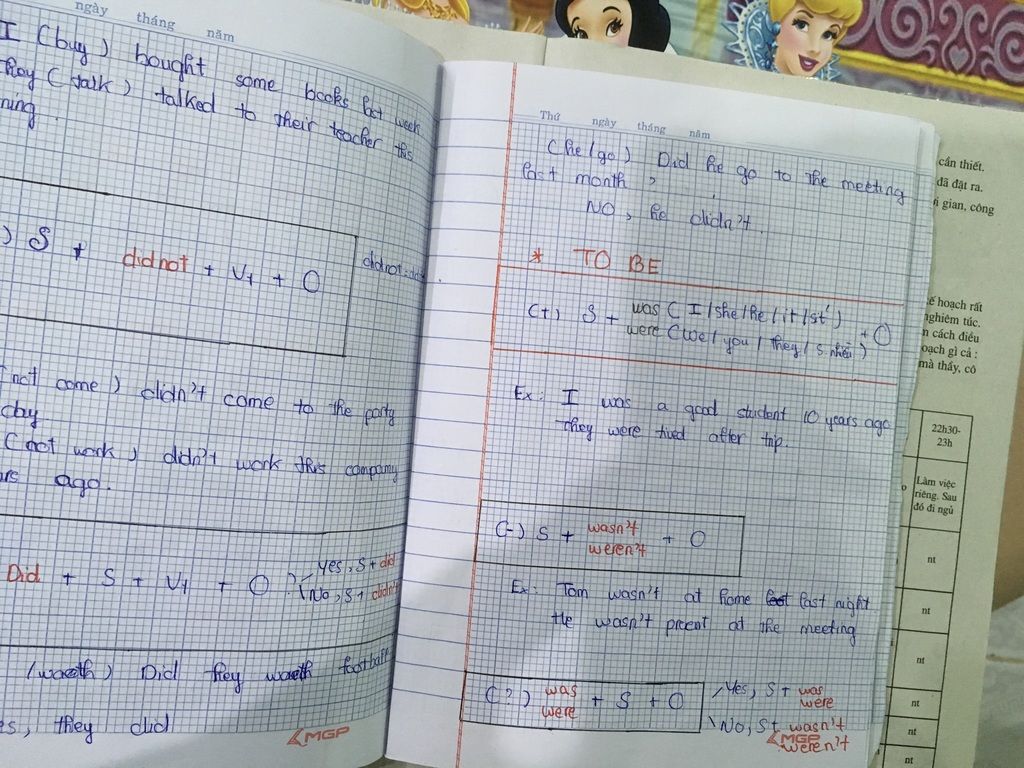 ngày tháng năm
I (buy) bought some books last week
They (talk) talked to their teacher this
ning.
) S + did not + V1 + O
(not come) didn't come to the party
day
(not work) didn't work this company
ars ago.
Did + S + V1 + O ? Yes, S + did
No, S + didn't
(wacth) Did they wacth football
es, they did
MGP
Thứ ngày tháng năm
(he/go) Did he go to the meeting
last month ?
NO, he didn't.
* TO BE
(+) S + was (I/she/he/it/sít) + O
were (we/you/they/s.nhiều)
Ex: I was a good student 10 years ago
They were tired after trip.
(-) S + wasn't + O
weren't
Ex: Tom wasn't at home last night
He wasn't precent at the meeting
(?) was + S + O
were
Yes, S + was
were
No, S + wasn't
weren't
MGP
cần thiết.
đã đặt ra.
i gian, công
ế hoạch rất
nghiêm túc.
n cách điều
oạch gì cả :
mà thấy, có
22h30-
23h
Làm việc
riêng. Sau
đó đi ngủ
nt
nt
nt
nt
nt
nt